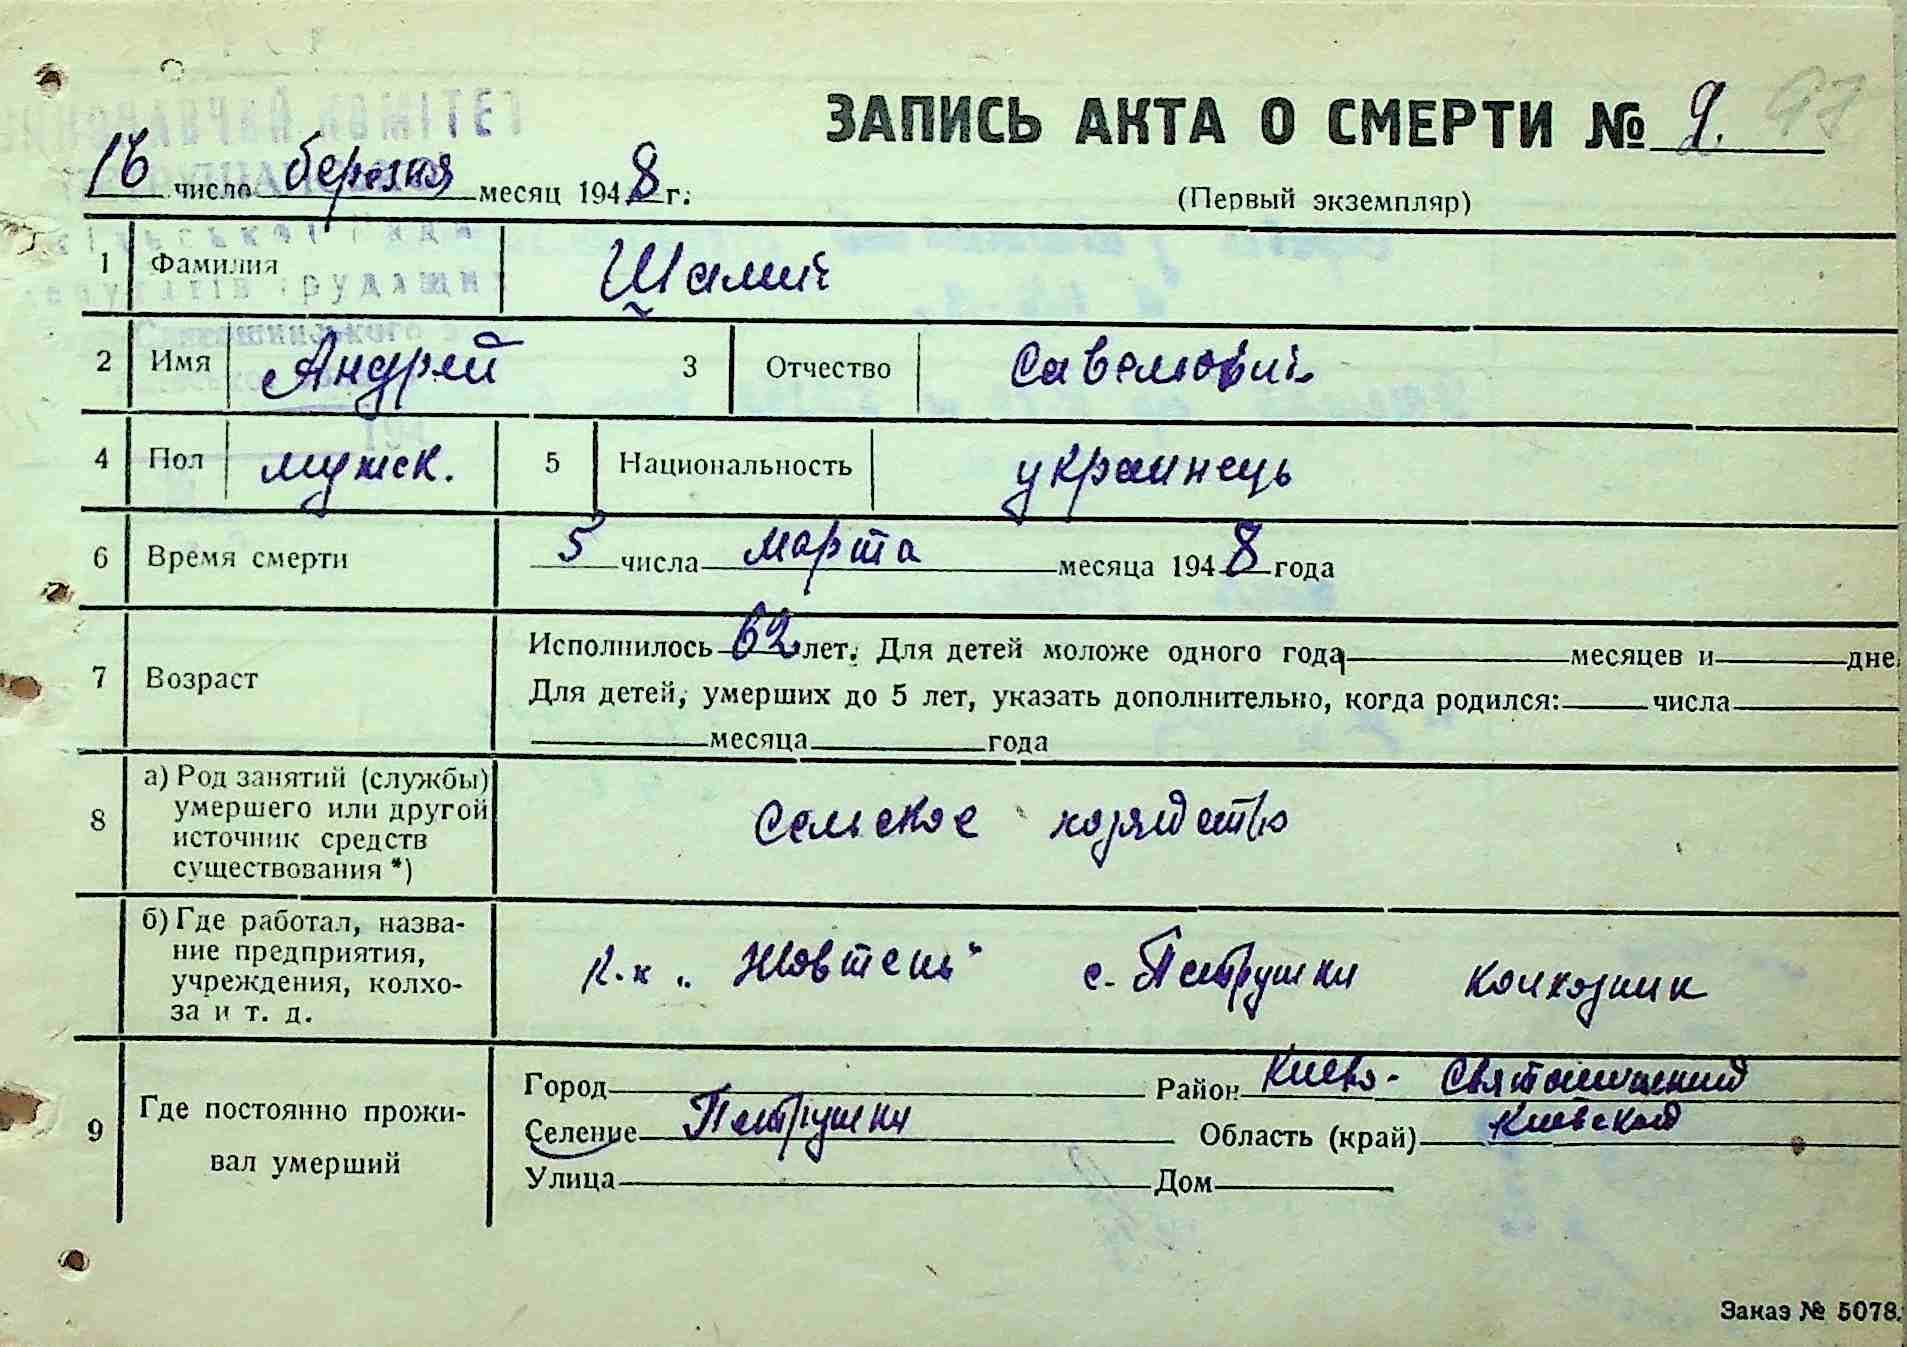 ЗАПИСЬ АКТА О СМЕРТИ № 2. 97
16 число березня месяц 1948 г.
(Первый экземпляр)
1 Фамилия Шамич
2 Имя Андрей 3 Отчество Савелович
4 Пол мужск. 5 Национальность украинець
6 Время смерти 5 числа марта месяца 1948 года
7 Возраст
Исполнилось 62 лет. Для детей моложе одного года месяцев и дне
Для детей, умерших до 5 лет, указать дополнительно, когда родился: числа
месяца года
8 а) Род занятий (службы)
умершего или другой
источник средств
существования *)
Сельское хозяйство
б) Где работал, назва-
ние предприятия,
учреждения, колхо-
за и т. д.
к-к „Жовтень" с. Петрушки колхозник
9 Где постоянно прожи-
вал умерший
Город Район Киево-Святошинский
Селение Петрушки Область (край) Киевской
Улица Дом
Заказ № 5078.